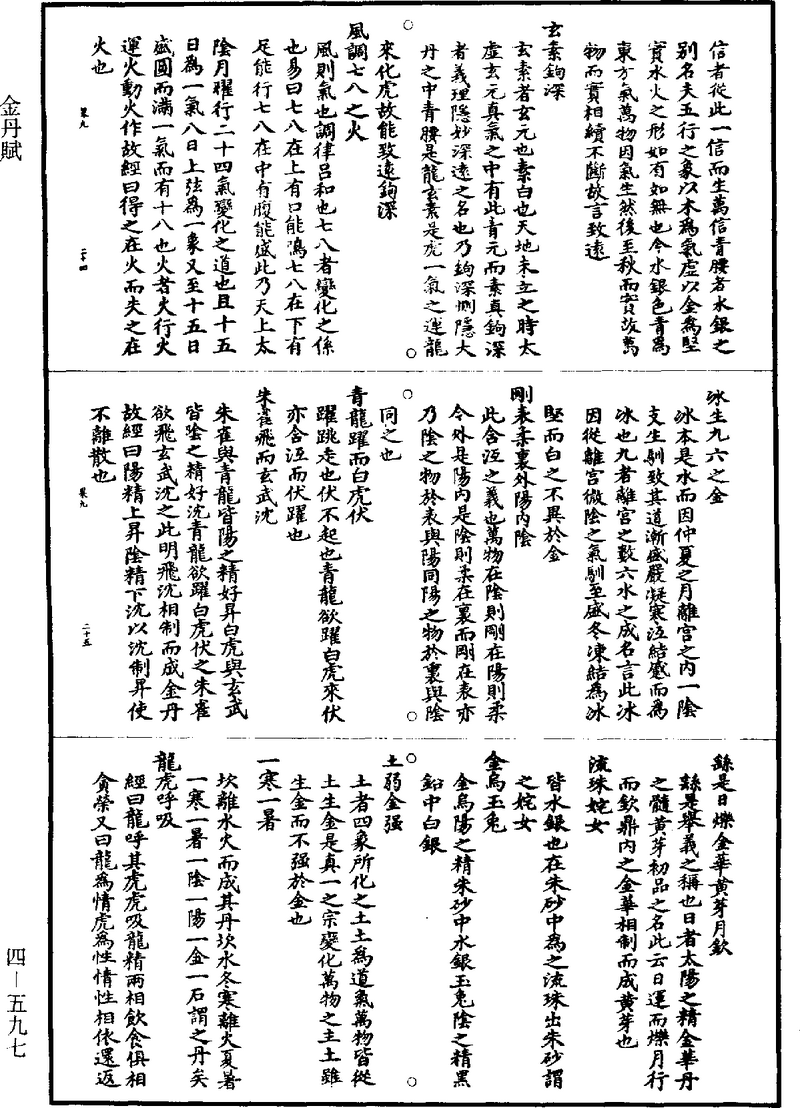 金丹賦
四－五九七
信者從此一信而生萬信青腰者水銀之
别名夫五行之象以木爲氣虛以金爲堅
實水火之形如有如無也今水銀色青爲
東方氣萬物因氣生然後至秋而實故萬
物而實相續不斷故言致遠
玄素鉤深
玄素者玄元也素白也天地未立之時太
虛玄元真氣之中有此青元而素真鉤深
者義理隱妙深遠之名也乃鉤深惻隱大
丹之中青腰是龍玄素是虎一氣之運龍
來化虎故能致遠鉤深
風調七八之火
風則氣也調律吕和也七八者變化之係
也易曰七八在上有口能鳴七八在下有
足能行七八在中有腹能盛此乃天上太
陰月曜行二十四氣變化之道也且十五
日爲一氣八日上弦爲一象又至十五日
盛圓而滿一氣而有十八也火者火行火
運火動火作故經曰得之在火而失之在
火也
卷九
二十四
冰生九六之金
冰本是水而因仲夏之月離宫之内一陰
支生馴致其道漸盛嚴凝寒沍結蹙而爲
冰也九者離宫之數六水之成名言此冰
因從離宫微陰之氣馴至盛冬凍結爲冰
堅而白之不異於金
剛表柔裏外陽内陰
此含沍之義也萬物在陰則剛在陽則柔
今外是陽内是陰則柔在裏而剛在表亦
乃陰之物於表與陽同陽之物於裏與陰
同之也
青龍躍而白虎伏
躍跳走也伏不起也青龍欲躍白虎來伏
亦含沍而伏躍也
朱雀飛而玄武沈
朱雀與青龍皆陽之精好昇白虎與玄武
皆陰之精好沈青龍欲躍白虎伏之朱雀
欲飛玄武沈之此明飛沈相制而成金丹
故經曰陽精上昇陰精下沈以沈制昇使
不離散也
卷九
二十五
繇是日爍金華黄芽月欽
繇是舉義之稱也日者太陽之精金華丹
之髓黄芽初品之名此云日運而爍月行
而欽鼎内之金華相制而成黄芽也
流珠姹女
皆水銀也在朱砂中爲之流珠出朱砂謂
之姹女
金烏玉兔
金烏陽之精朱砂中水銀玉兔陰之精黑
鉛中白銀
土弱金强
土者四象所化之土土爲道氣萬物皆從
土生金是真一之宗變化萬物之主土雖
生金而不强於金也
一寒一暑
坎離水火而成其丹坎水冬寒離火夏暑
一寒一暑一陰一陽一金一石謂之丹矣
龍虎呼吸
經曰龍呼其虎虎吸龍精兩相飲食俱相
貪榮又曰龍爲情虎爲性情性相依還返